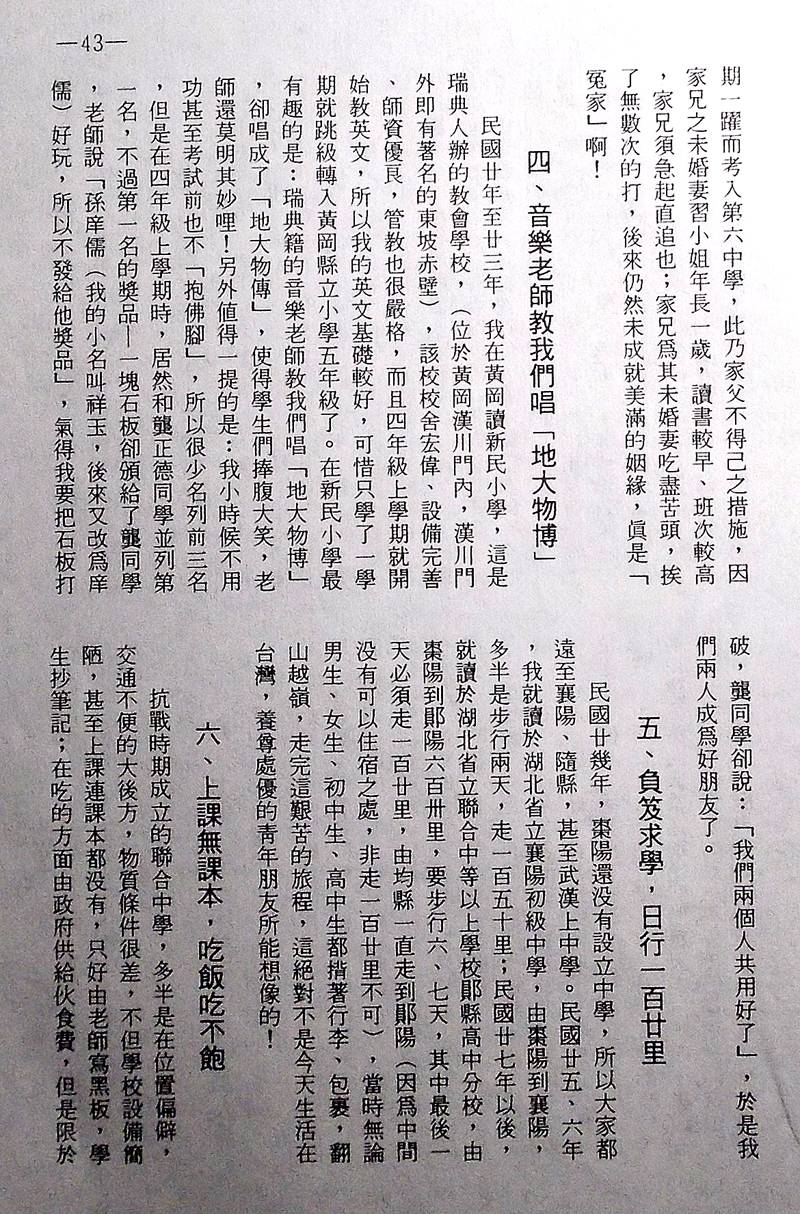 —43—
期一躍而考入第六中學，此乃家父不得己之措施，因
家兄之未婚妻習小姐年長一歲，讀書較早、班次較高
，家兄須急起直追也；家兄爲其未婚妻吃盡苦頭，挨
了無數次的打，後來仍然未成就美滿的姻緣，眞是「
冤家」啊！
四、音樂老師教我們唱「地大物博」
民國廿年至廿三年，我在黃岡讀新民小學，這是
瑞典人辦的教會學校，（位於黃岡漢川門內，漢川門
外即有著名的東坡赤壁），該校校舍宏偉、設備完善
、師資優良，管教也很嚴格，而且四年級上學期就開
始教英文，所以我的英文基礎較好，可惜只學了一學
期就跳級轉入黃岡縣立小學五年級了。在新民小學最
有趣的是：瑞典籍的音樂老師教我們唱「地大物博」
，卻唱成了「地大物傳」，使得學生們捧腹大笑，老
師還莫明其妙哩！另外值得一提的是：我小時候不用
功甚至考試前也不「抱佛腳」，所以很少名列前三名
，但是在四年級上學期時，居然和龔正德同學並列第
一名，不過第一名的獎品—一塊石板卻頒給了龔同學
，老師說「孫庠儒（我的小名叫祥玉，後來又改爲庠
儒）好玩，所以不發給他獎品」，氣得我要把石板打
破，龔同學卻說：「我們兩個人共用好了」，於是我
們兩人成爲好朋友了。
五、負笈求學，日行一百廿里
民國廿幾年，棗陽還没有設立中學，所以大家都
遠至襄陽、隨縣，甚至武漢上中學。民國廿五、六年
，我就讀於湖北省立襄陽初級中學，由棗陽到襄陽，
多半是步行兩天，走一百五十里；民國廿七年以後，
就讀於湖北省立聯合中等以上學校鄖縣高中分校，由
棗陽到鄖陽六百卅里，要步行六、七天，其中最後一
天必須走一百廿里，由均縣一直走到鄖陽（因爲中間
没有可以住宿之處，非走一百廿里不可），當時無論
男生、女生、初中生、高中生都揹著行李、包裹，翻
山越嶺，走完這艱苦的旅程，這絕對不是今天生活在
台灣，養尊處優的靑年朋友所能想像的！
六、上課無課本，吃飯吃不飽
抗戰時期成立的聯合中學，多半是在位置偏僻，
交通不便的大後方，物質條件很差，不但學校設備簡
陋，甚至上課連課本都没有，只好由老師寫黑板，學
生抄筆記；在吃的方面由政府供給伙食費，但是限於